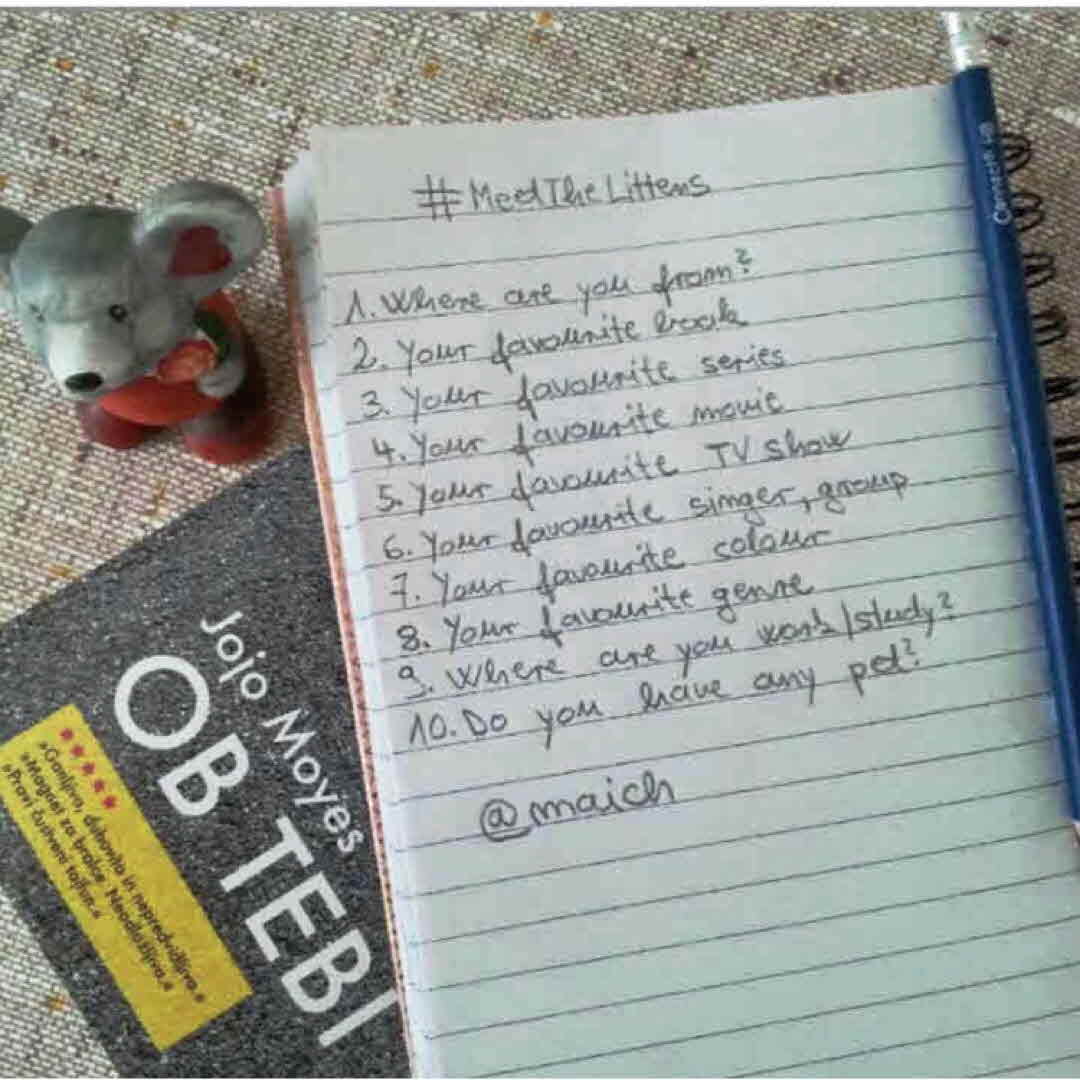 #MeetTheLittens
1. Where are you from?
2. Your favourite book
3. Your favourite series
4. Your favourite movie
5. Your favourite TV show
6. Your favourite singer, group
7. Your favourite colour
8. Your favourite genre
9. Where are you work/study?
10. Do you have any pet?
@maich
Jojo Moyes
OB TEBI
»Ganljivo, duhovito in nepredvidljivo.«
»Magnet za bralce. Neodložljivo.«
»Pravi čustveni tajfun.«